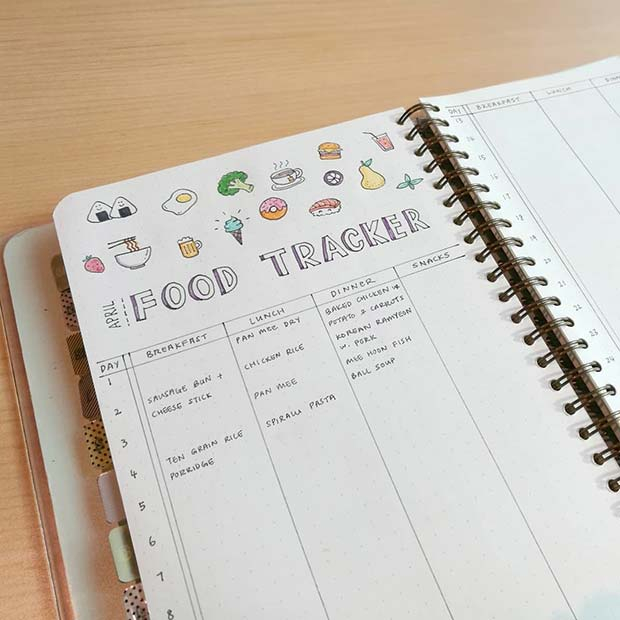 APRIL
FOOD TRACKER
DAY BREAKFAST LUNCH DINNER SNACKS
1 PAN MEE DRY BAKED CHICKEN W POTATO & CARROTS
2 SAUSAGE BUN + CHEESE STICK CHICKEN RICE KOREAN RAMYEON W. PORK
3 PAN MEE MEE HOON FISH BALL SOUP
4 TEN GRAIN RICE PORRIDGE SPIRALLI PASTA
5
6
7
8
DAY BREAKFAST LUNCH
13
14
15
16
17
18
19
20
21
22
23
24